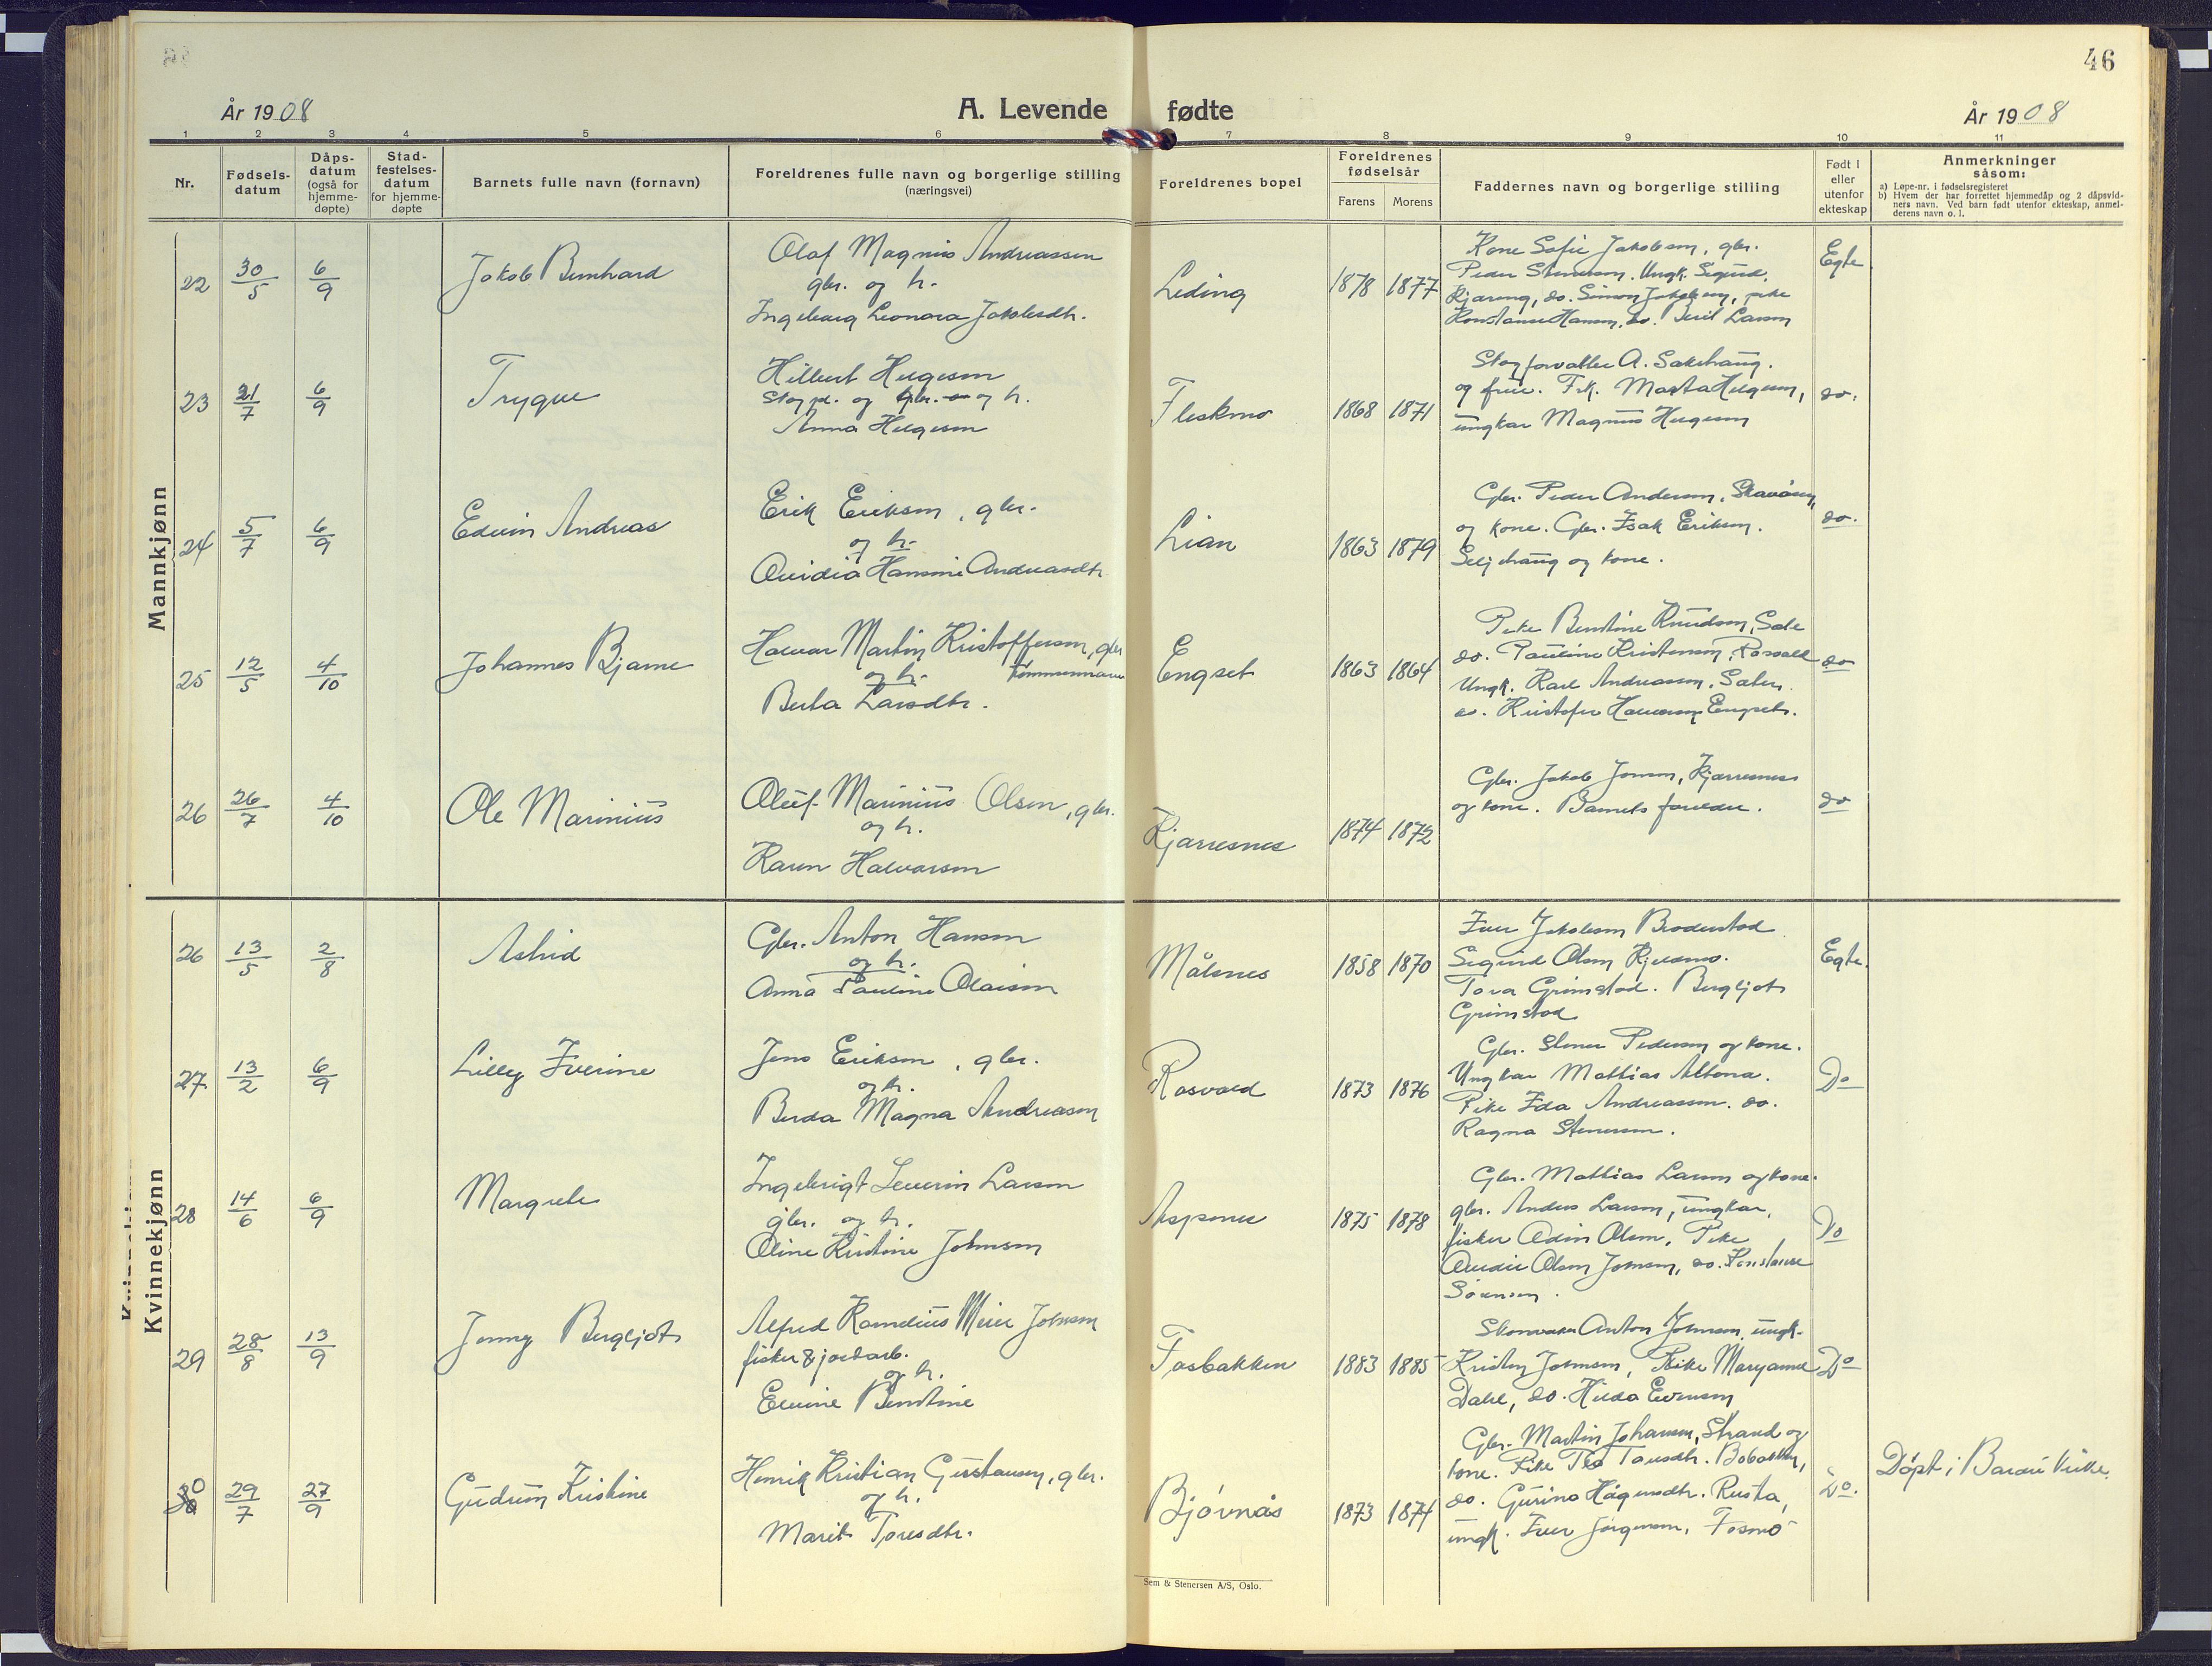 46
År 1908
A. Levende fødte
År 1908
1 2 3 4 5 6 7 8 9 10 11
Nr.
Fødsels-
datum
Dåps-
datum
(også for
hjemme-
døpte)
Stad-
festelses-
datum
for hjemme-
døpte
Barnets fulle navn (fornavn)
Foreldrenes fulle navn og borgerlige stilling
(næringsvei)
Foreldrenes bopel
Foreldrenes
fødselsår
Farens Morens
Faddernes navn og borgerlige stilling
Født i
eller
utenfor
ekteskap
Anmerkninger
såsom:
a) Løpe-nr. i fødselsregisteret
b) Hvem der har forrettet hjemmedåp og 2 dåpsvid-
ners navn. Ved barn født utenfor ekteskap, anmel-
derens navn o. l.
Mannkjønn
22 30/5 6/9 Jakob Bernhard
Olaf Magnus Andreassen
gbr. og h.
Ingeborg Leonora Jakobsdtr.
Leding 1878 1877
Kone Sofie Jakobsen, gbr.
Peder Stenersen. Ungk. Sigurd
Kjæreng, do. Simon Jakobsen, pike
Konstanse Hansen, do. Larsen
Egte
23 21/7 6/9 Trygve
Hilbert Helgesen
Skogsl. og gbr. og h.
Anna Helgesen
Fleskmo 1868 1871
Skogforvalter A. Sakshaug.
og frue. Frk. Marta Helgesen,
ungkar Magnus Helgesen
do.
24 5/7 6/9 Edvin Andreas
Erik Eriksen, gbr.
og h.
Ovidia Hansine Andreasdtr
Lian 1863 1879
Gbr. Peder Andersen,
og kone. Gbr. Isak Eriksen.
Seljehaug og kone.
do.
25 12/5 4/10 Johannes Bjarne
Halvar Martin Kristoffersen, gbr
og h. tømmermann
Berta Larsdtr.
Engset 1863 1864
Pike Berntine Knudsen,
do. Pauline Kristensen, Rosvall
Ungk. Karl Andreassen, Sæter.
do. Kristofer Halvorsen Engseth.
do
26 26/7 4/10 Ole Marinius
Oluf Marinius Olsen, gbr.
og h.
Karen Halvorsen
Kjærresnes 1874 1872
Gbr. Jakob Jensen, Kjærresnes
og kone. Barnets foreldre.
do
Kvinnekjønn
26 13/5 2/8 Astrid
Gbr. Anton Hansen
og h.
Anna Pauline Olaisen
Målsnes 1858 1870
Iver Jakobsen Broderstad
Sigurd Olsen Kjelsmo.
Tora Grimstad. Bergljot
Grimstad
Egte.
27 13/2 6/9 Lilly Iverine
Jens Eriksen, gbr.
og h.
Berda Magna Andreasen
Rosvold 1873 1876
Gbr. Stener Pedersen og kone.
Ungkar Mathias Altona.
Pike Ida Andreassen. do.
Ragna Stenersen.
Do
28 14/6 6/9 Margrete
Ingebrigt Severin Larsen
gbr. og h.
Oline Kristine Johnsen
Aspenes 1875 1878
Gbr. Mathias Larsen og kone.
gbr. Anders Larsen, ungkar,
fisker Edin Olsen, Pike
Olsen Jensen, do. Konstanse
Sørensen.
Do
29 28/8 13/9 Jenny Bergljot
Alfred Kornelius Meier Johnsen
fisker & jordarb.
og h.
Elvine Berntine
Fosbakken 1883 1885
Skomaker Anton Johnsen, ungk.
Kristen Johnsen, Pike Maryanne
Dahl, do. Hilda Evensen
Do
30 29/7 27/9 Gudrun Kristine
Henrik Kristian Gustavsen, gbr.
og h.
Marit Toresdtr.
Bjørnås 1873 1874
Gbr. Martin Johansen, Strand og
kone. Pike Toresdtr. Bobakken,
do. Gurina Hågensdtr. Rusta,
ungk. Iver Jørgensen, Fosmo
Do.
Døpt i Bardu kirke.
Sem & Stenersen A/S, Oslo.